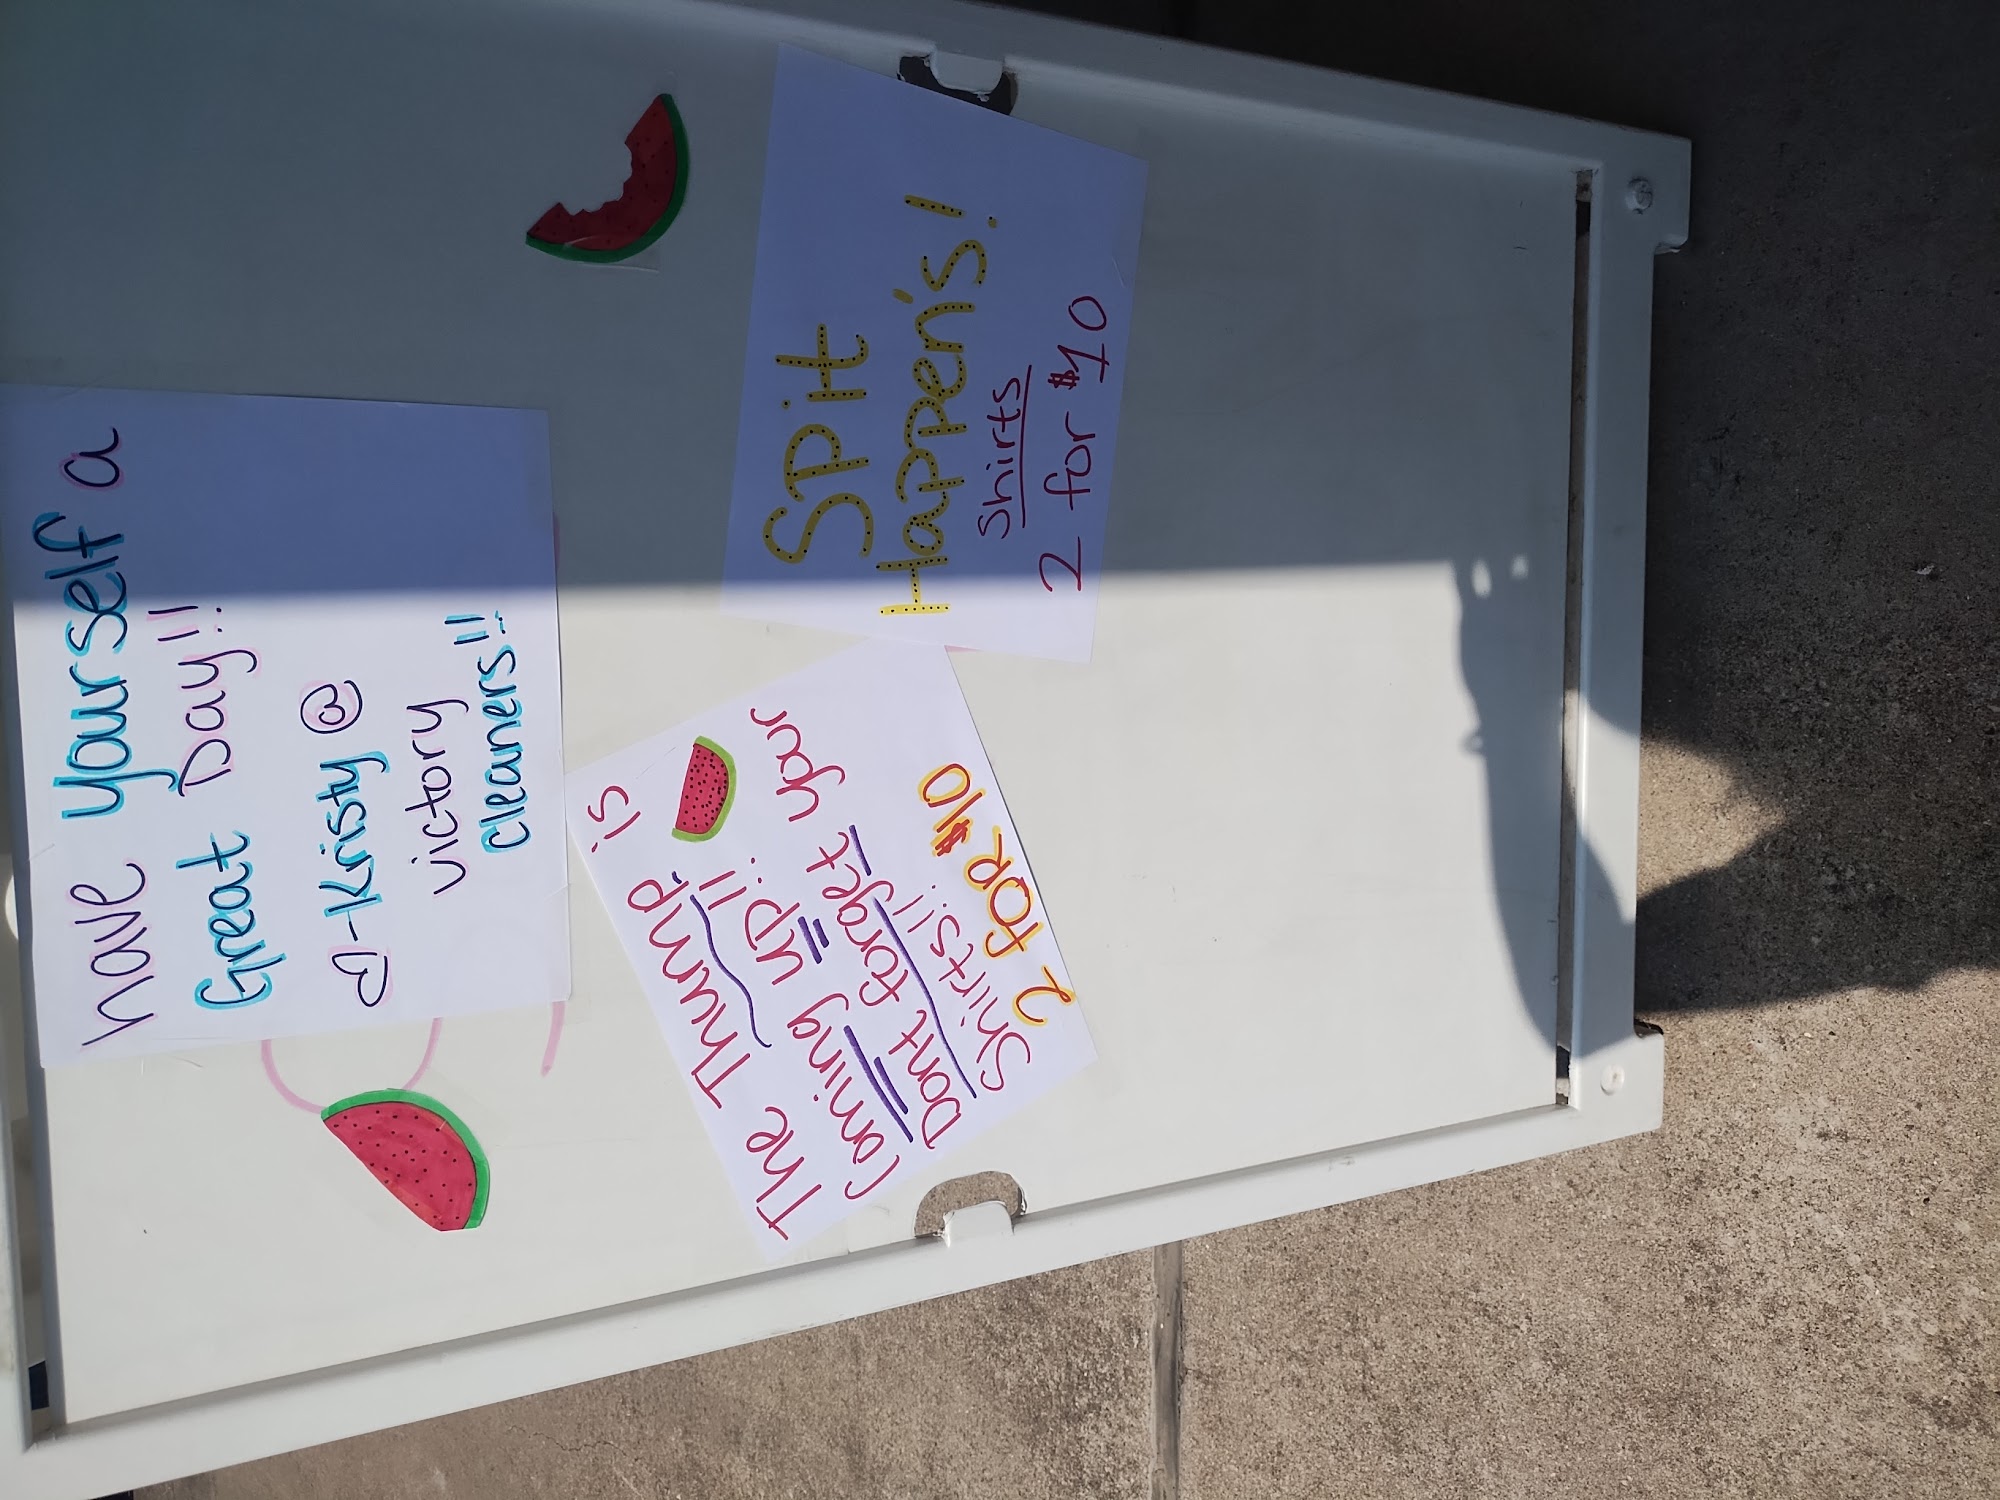 have yourself a
Great Day!!
♡-Kristy @
victory
cleaners!!
The Thump is
Coming up!!
Dont forget your
Shirts!!
2 FOR $10
Spit
Happen's!
Shirts
2 for $10